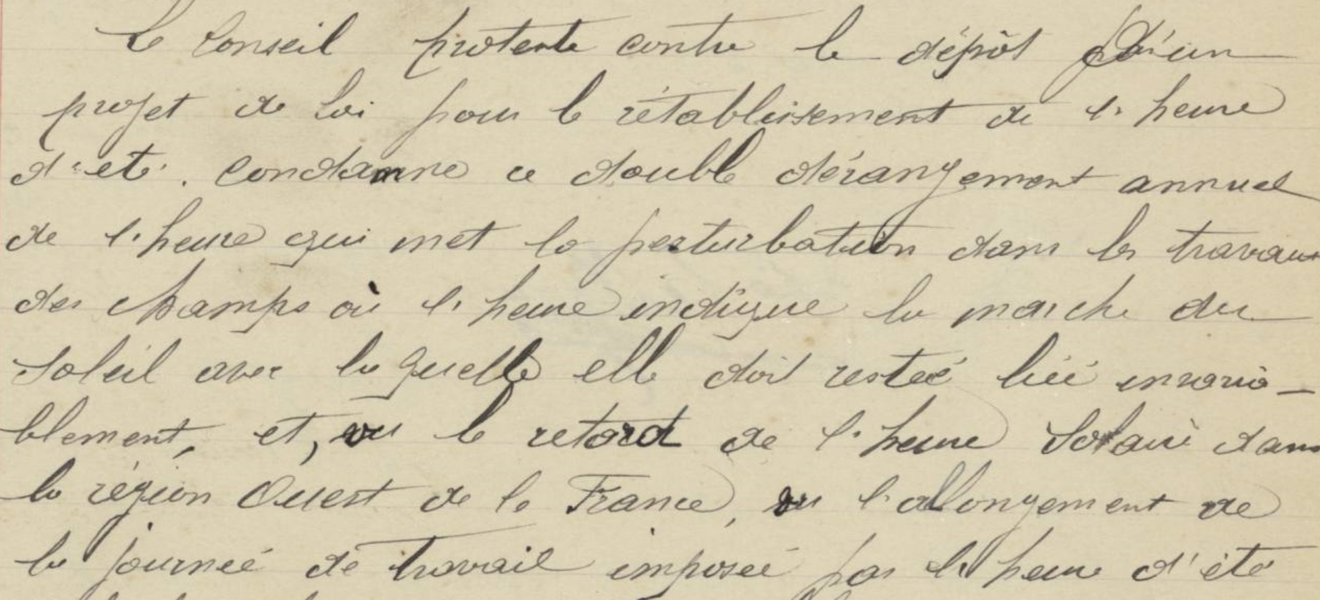 Le Conseil proteste contre le dépôt d'un
projet de loi pour le rétablissement de l'heure
d'été. condamne ce double dérangement annuel
de l'heure qui met la perturbation dans les travaux
des champs où l'heure indique la marche du
soleil avec laquelle elle doit restée liée invaria-
blement, et, vu le retard de l'heure solaire dans
la région Ouest de la France, vu l'allongement de
la journée de travail imposée par l'heure d'été